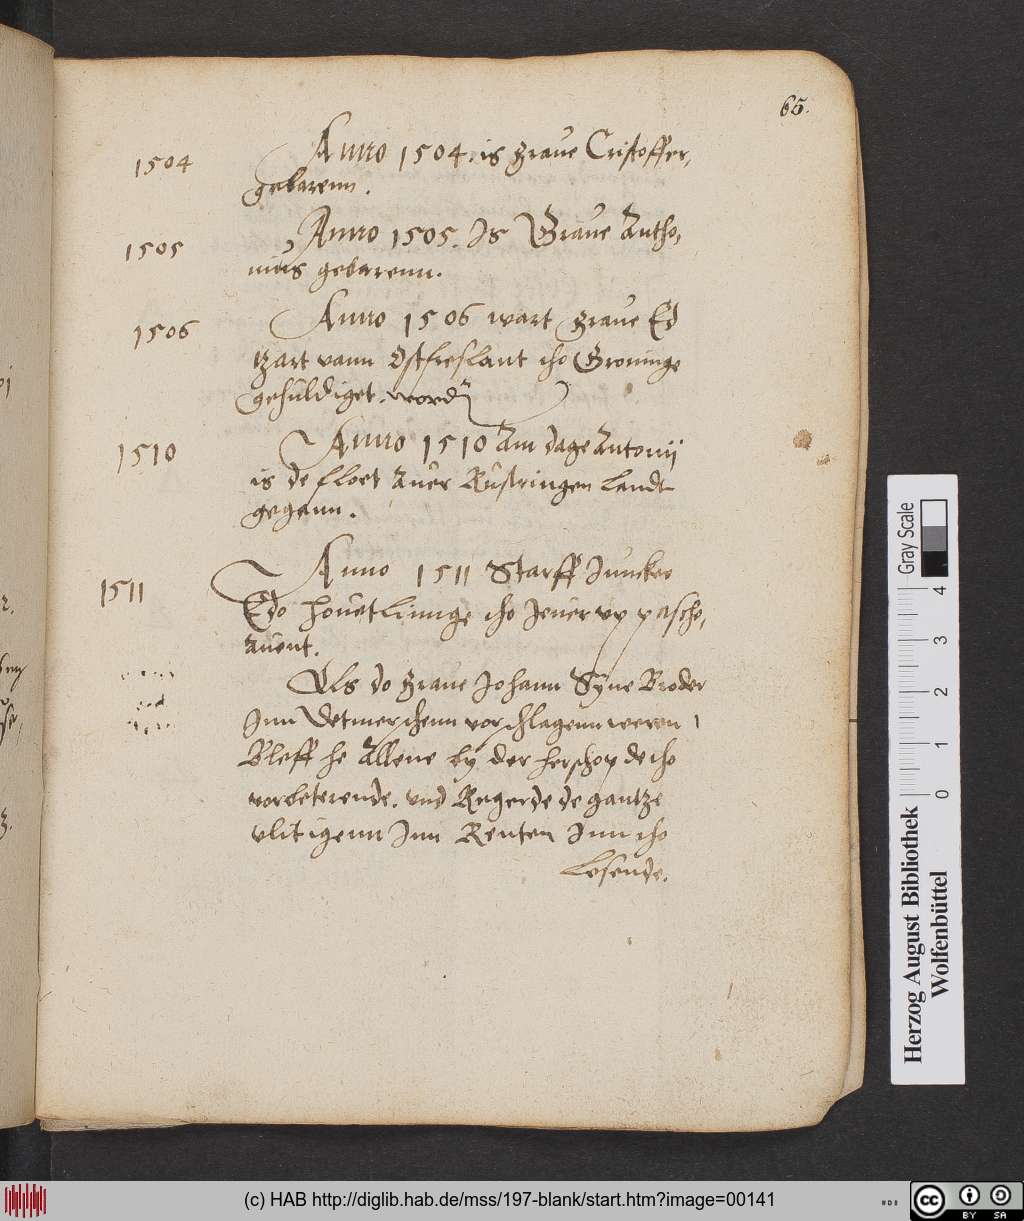 65.
1504
Anno 1504. is graue Cristoffer,
gebarenn.
1505
Anno 1505. Is Graue Antho,
nius gebarenn.
1506
Anno 1506 wart graue Ed
tzart vann Ostfreslant tho Groninge
gehuldiget. wordn
1510
Anno 1510 Am dage Antonij
is de floet Auer Rustringen landt
gegann.
1511
Anno 1511 Starff Juncker
Edo houetlinnge tho Jeuer vp pascho,
Auent.
Als do graue Johann Syne Broder
Inn Detmerschenn vorschlagenn weren
Bleff he Allene by der herschop de tho
vorbeterende. vnd Regerde de gantze
vlitigenn Inn Renten Inn tho
lesende.
Gray Scale
4
3
2
1
0
Herzog August Bibliothek
Wolfenbüttel
(c) HAB http://diglib.hab.de/mss/197-blank/start.htm?image=00141
cc BY SA